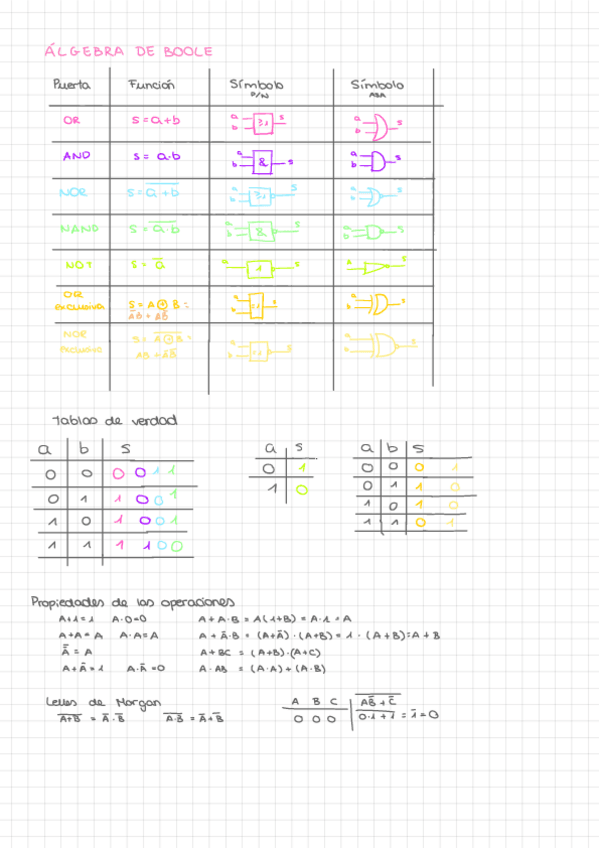 ÁLGEBRA DE BOOLE
Puerta Función Símbolo P/N Símbolo ASA
OR S = a+b a b ≥1 s a b s
AND S = a·b a b & s a b s
NOR S = \overline{a+b} a b ≥1 s a b s
NAND S = \overline{a·b} a b & s a b s
NOT S = \overline{a} a 1 s a s
OR exclusiva S = A ⊕ B = a b = s a b s
\overline{A}B + A\overline{B}
NOR exclusiva S = \overline{A ⊕ B} = a b s a b s
AB + \overline{A}\overline{B}
Tablas de verdad
a b s a s a b s
0 0 0 0 1 1 0 1 0 0 0 1
0 1 1 0 0 1 1 0 0 1 1 0
1 0 1 0 0 1 1 0 1 0
1 1 1 1 0 0 1 1 0 1
Propiedades de las operaciones
A+1=1 A·0=0 A+A·B = A(1+B) = A·1 = A
A+A = A A·A = A A+\overline{A}·B = (A+\overline{A})·(A+B) = 1·(A+B) = A+B
\overline{\overline{A}} = A A+BC = (A+B)·(A+C)
A+\overline{A} = 1 A·\overline{A} = 0 A·AB = (A·A)+(A·B)
Leyes de Morgan A B C \overline{A\overline{B}+\overline{C}}
\overline{A+B} = \overline{A}·\overline{B} \overline{A·B} = \overline{A}+\overline{B} 0 0 0 \overline{0·1+1} = \overline{1} = 0